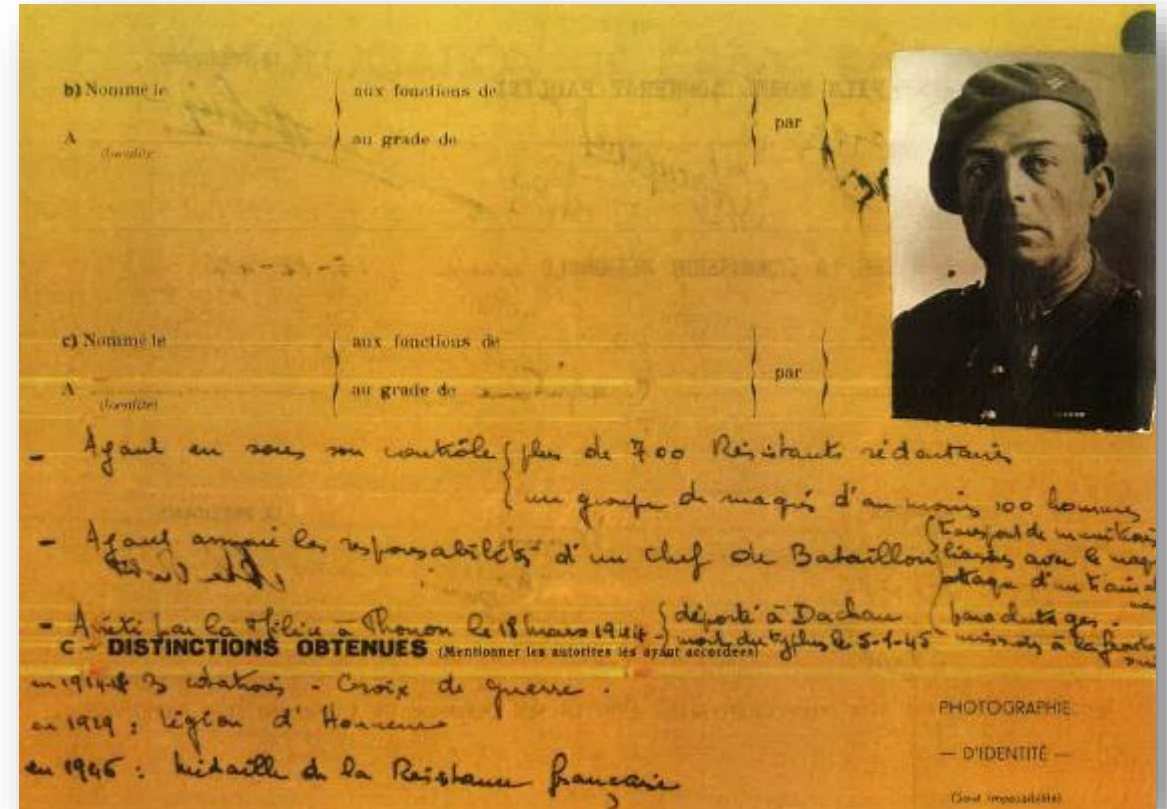 b) Nommé le aux fonctions de
A au grade de par
(localité)
c) Nommé le aux fonctions de
A au grade de par
(localité)
- Ayant eu sous son contrôle { plus de 700 Résistants sédentaires
{ un groupe de maquis d'au moins 100 hommes
- Ayant assumé les responsabilités d'un chef de Bataillon
(transport de munitions
liaisons avec le maq
attaque d'un train
parachutages.
missions à la frontière
- Arrêté par la Milice à Thonon le 18 mars 1944 - { déporté à Dachau
mort du typhus le 5-1-45
C - DISTINCTIONS OBTENUES (Mentionner les autorités les ayant accordées)
en 1914-18 3 citations - Croix de guerre.
en 1929 : Légion d'Honneur
en 1946 : Médaille de la Résistance française
PHOTOGRAPHIE
— D'IDENTITÉ —
(Sauf impossibilité)